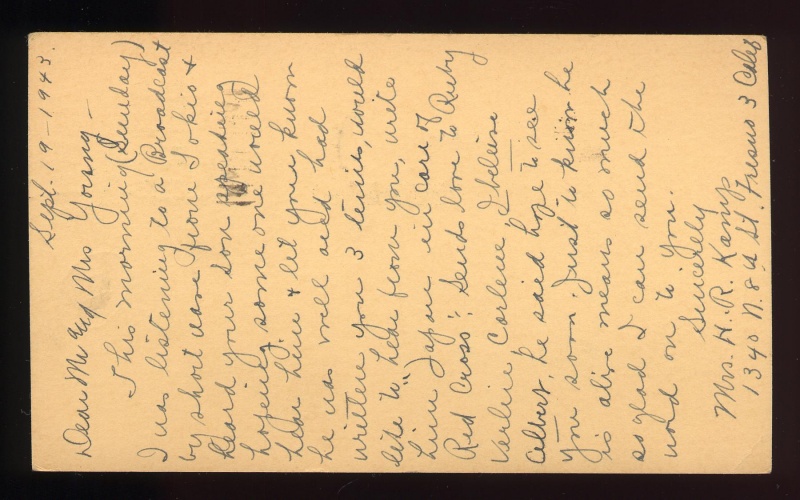 Sept. 19-1943.
Dear Mr and Mrs Young -
This morning (Sunday)
I was listening to a Broadcast
by short wave from Tokio &
heard your son speaking
hopeing some one would
hear him & let you know
he was well and had
written you 3 times, would
like to hear from you, write
him Japan in care of
Red Cross; Sends love to Ruby
Carlene I believe
Albert, he said hope to see
you soon. Just to know he
is alive means so much
so glad I can send the
word on to you
Sincerely
Mrs. H. R. Kamp
1340 N. 8th St. Fresno 3 Calif